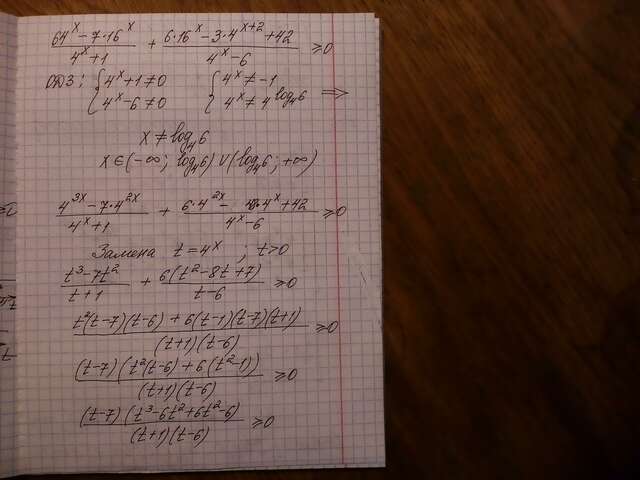 (64^x - 7·16^x)/(4^x + 1) + (6·16^x - 3·4^(x+2) + 42)/(4^x - 6) ≥ 0
ОДЗ: { 4^x + 1 ≠ 0 { 4^x ≠ -1
{ 4^x - 6 ≠ 0 { 4^x ≠ 4^(log₄6) ⇒
x ≠ log₄6
x ∈ (-∞; log₄6) ∪ (log₄6; +∞)
(4^(3x) - 7·4^(2x))/(4^x + 1) + (6·4^(2x) - 48·4^x + 42)/(4^x - 6) ≥ 0
Замена t = 4^x ; t > 0
(t³ - 7t²)/(t + 1) + 6(t² - 8t + 7)/(t - 6) ≥ 0
(t²(t-7)(t-6) + 6(t-1)(t-7)(t+1))/((t+1)(t-6)) ≥ 0
((t-7)(t²(t-6) + 6(t²-1)))/((t+1)(t-6)) ≥ 0
((t-7)(t³ - 6t² + 6t² - 6))/((t+1)(t-6)) ≥ 0